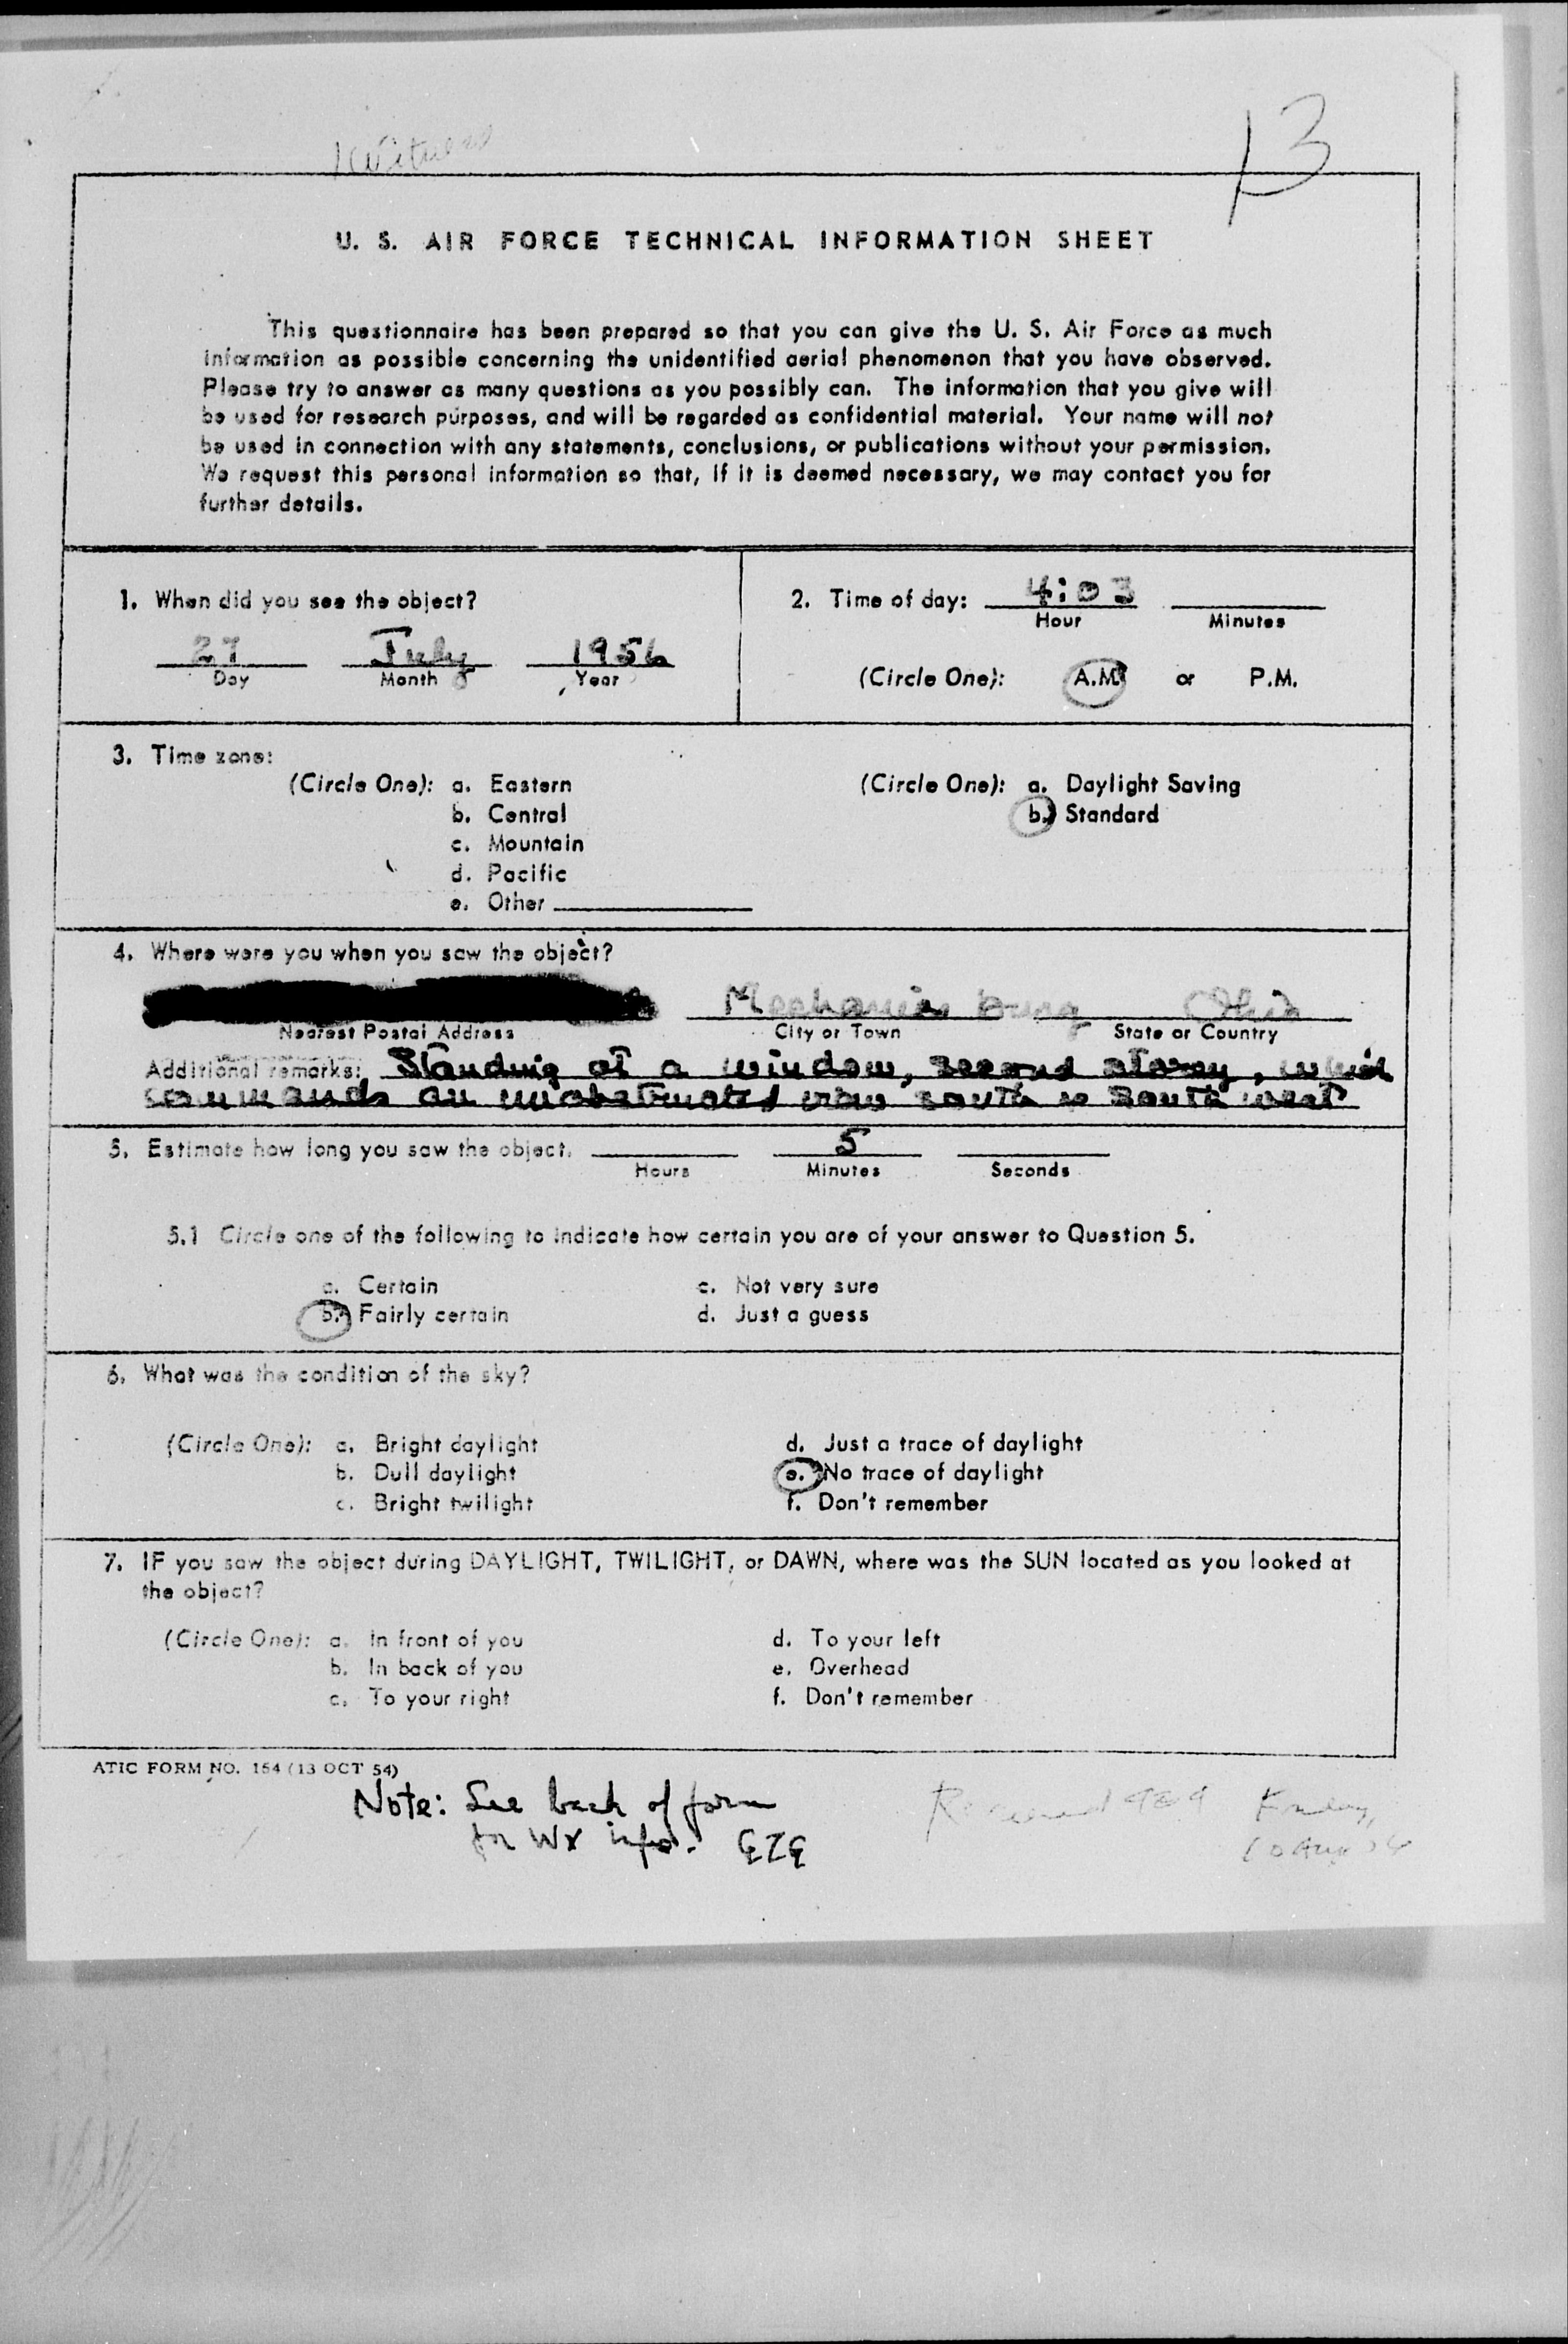 Witness
13
U. S. AIR FORCE TECHNICAL INFORMATION SHEET
This questionnaire has been prepared so that you can give the U. S. Air Force as much
information as possible concerning the unidentified aerial phenomenon that you have observed.
Please try to answer as many questions as you possibly can. The information that you give will
be used for research purposes, and will be regarded as confidential material. Your name will not
be used in connection with any statements, conclusions, or publications without your permission.
We request this personal information so that, if it is deemed necessary, we may contact you for
further details.
1. When did you see the object?
27 July 1956
Day Month Year
2. Time of day: 4:03
Hour Minutes
(Circle One): A.M. or P.M.
3. Time zone:
(Circle One): a. Eastern
b. Central
c. Mountain
d. Pacific
e. Other
(Circle One): a. Daylight Saving
b. Standard
4. Where were you when you saw the object?
Mechanicsburg Ohio
Nearest Postal Address City or Town State or Country
Additional remarks: Standing at a window, second storey, which
commands an unobstructed view south to south west
5. Estimate how long you saw the object. 5
Hours Minutes Seconds
5.1 Circle one of the following to indicate how certain you are of your answer to Question 5.
a. Certain c. Not very sure
b. Fairly certain d. Just a guess
6. What was the condition of the sky?
(Circle One): a. Bright daylight d. Just a trace of daylight
b. Dull daylight e. No trace of daylight
c. Bright twilight f. Don't remember
7. IF you saw the object during DAYLIGHT, TWILIGHT, or DAWN, where was the SUN located as you looked at
the object?
(Circle One): a. In front of you d. To your left
b. In back of you e. Overhead
c. To your right f. Don't remember
ATIC FORM NO. 164 (13 OCT 54)
Note: See back of form
for WX info.
Received Friday,
10 Aug 56